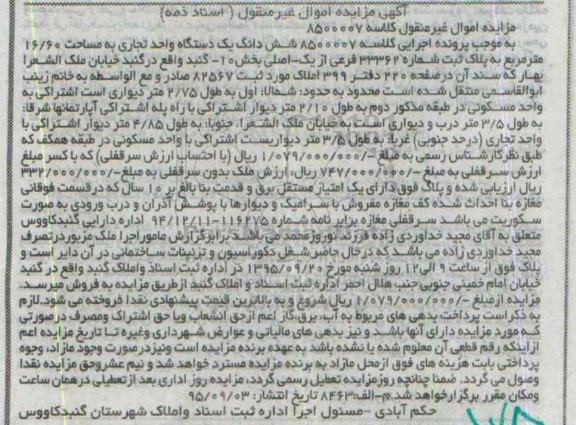 آگهی مزایده اموال غیرمنقول ( اسناد ذمه)
مزایده اموال غیرمنقول کلاسه ۸۵۰۰۰۰۷
به موجب پرونده اجرایی کلاسه ۸۵۰۰۰۰۷ شش دانگ یک دستگاه واحد تجاری به مساحت ۱۶/۶۰
مترمربع به پلاک ثبت شماره ۳۳۳۶۲ فرعی از یک-اصلی بخش۱۰- گنبد واقع در گنبد خیابان ملک الشعرا
بهار که سند آن در صفحه ۲۲۰ دفتر ۳۹۹ املاک مورد ثبت ۸۲۵۶۷ صادر و مع الواسطه به خانم زینب
ابوالقاسمی منتقل شده است محدود به حدود: شمالا: اول به طول ۲/۷۵ متر دیواری است اشتراکی به
واحد مسکونی در طبقه مذکور دوم به طول ۲/۱۰ متر دیوار اشتراکی با راه پله اشتراکی آپارتمانها شرقا:
به طول ۳/۵ متر درب و دیواری است به خیابان ملک الشعرا. جنوبا: به طول ۴/۸۵ متر دیوار اشتراکی با
واحد تجاری (درحد جنوبی) غربا: به طول ۳/۵ متر دیواریست اشتراکی با واحد مسکونی در طبقه همکف که
طبق نظر کارشناس رسمی به مبلغ -/۱/۰۷۹/۰۰۰/۰۰۰ ریال (با احتساب ارزش سرقفلی) که با کسر مبلغ
ارزش سرقفلی به مبلغ -/۷۴۷/۰۰۰/۰۰۰ ریال ارزش ملک بدون سرقفلی به مبلغ-/۳۳۲/۰۰۰/۰۰۰
ریال ارزیابی شده و پلاک فوق دارای یک امتیاز مستقل برق و قدمت بنا بالغ بر ۱۰ سال که درقسمت فوقانی
مغازه بنا احداث شده کف مغازه مفروش با سرامیک و دیوارها با پوشش آذران و درب ورودی به صورت
سکوریت می باشد سرقفلی مغازه برابر نامه شماره ۱۱۶۲۷۵-۹۴/۱۲/۱۱ اداره دارایی گنبدکاووس
متعلق به آقای مجید خداوردی زاده فرزند نوروزمحمد می باشد برابر گزارش مامور اجرا ملک مزبور درتصرف
مجید خداوردی زاده می باشد که در حال حاضر شغل دکوراسیون و تزئینات ساختمانی در آن دایر است و
پلاک فوق از ساعت ۹ الی۱۲ روز شنبه مورخ ۱۳۹۵/۰۹/۲۰ در اداره ثبت اسناد و املاک گنبد واقع در گنبد
خیابان امام خمینی جنوبی جنب هلال احمر اداره ثبت اسناد و املاک گنبد ازطریق مزایده به فروش میرسد.
مزایده ازمبلغ -/۱/۰۷۹/۰۰۰/۰۰۰ ریال شروع و به بالاترین قیمت پیشنهادی نقدا فروخته می شود.لازم
به ذکر است پرداخت بدهی های مربوط به آب، برق،گاز اعم ازحق انشعاب ویا حق اشتراک ومصرف درصورتی
که مورد مزایده دارای آنها باشد و نیز بدهی های مالیاتی و عوارض شهرداری وغیره تا تاریخ مزایده اعم
ازاینکه رقم قطعی آن معلوم شده یا نشده باشد به عهده برنده مزایده است ونیزدرصورت وجود مازاد، وجوه
پرداختی بابت هزینه های فوق ازمحل مازاد به برنده مزایده مسترد خواهد شد و نیم عشروحق مزایده نقدا
وصول می گردد. ضمنا چنانچه روزمزایده تعطیل رسمی گردد، مزایده روز اداری بعد ازتعطیلی درهمان ساعت
ومکان مقرر برگزارخواهد شد.م-الف:۸۴۶۳ تاریخ انتشار: ۹۵/۰۹/۰۳
حکم آبادی -مسئول اجرا اداره ثبت اسناد واملاک شهرستان گنبدکاووس